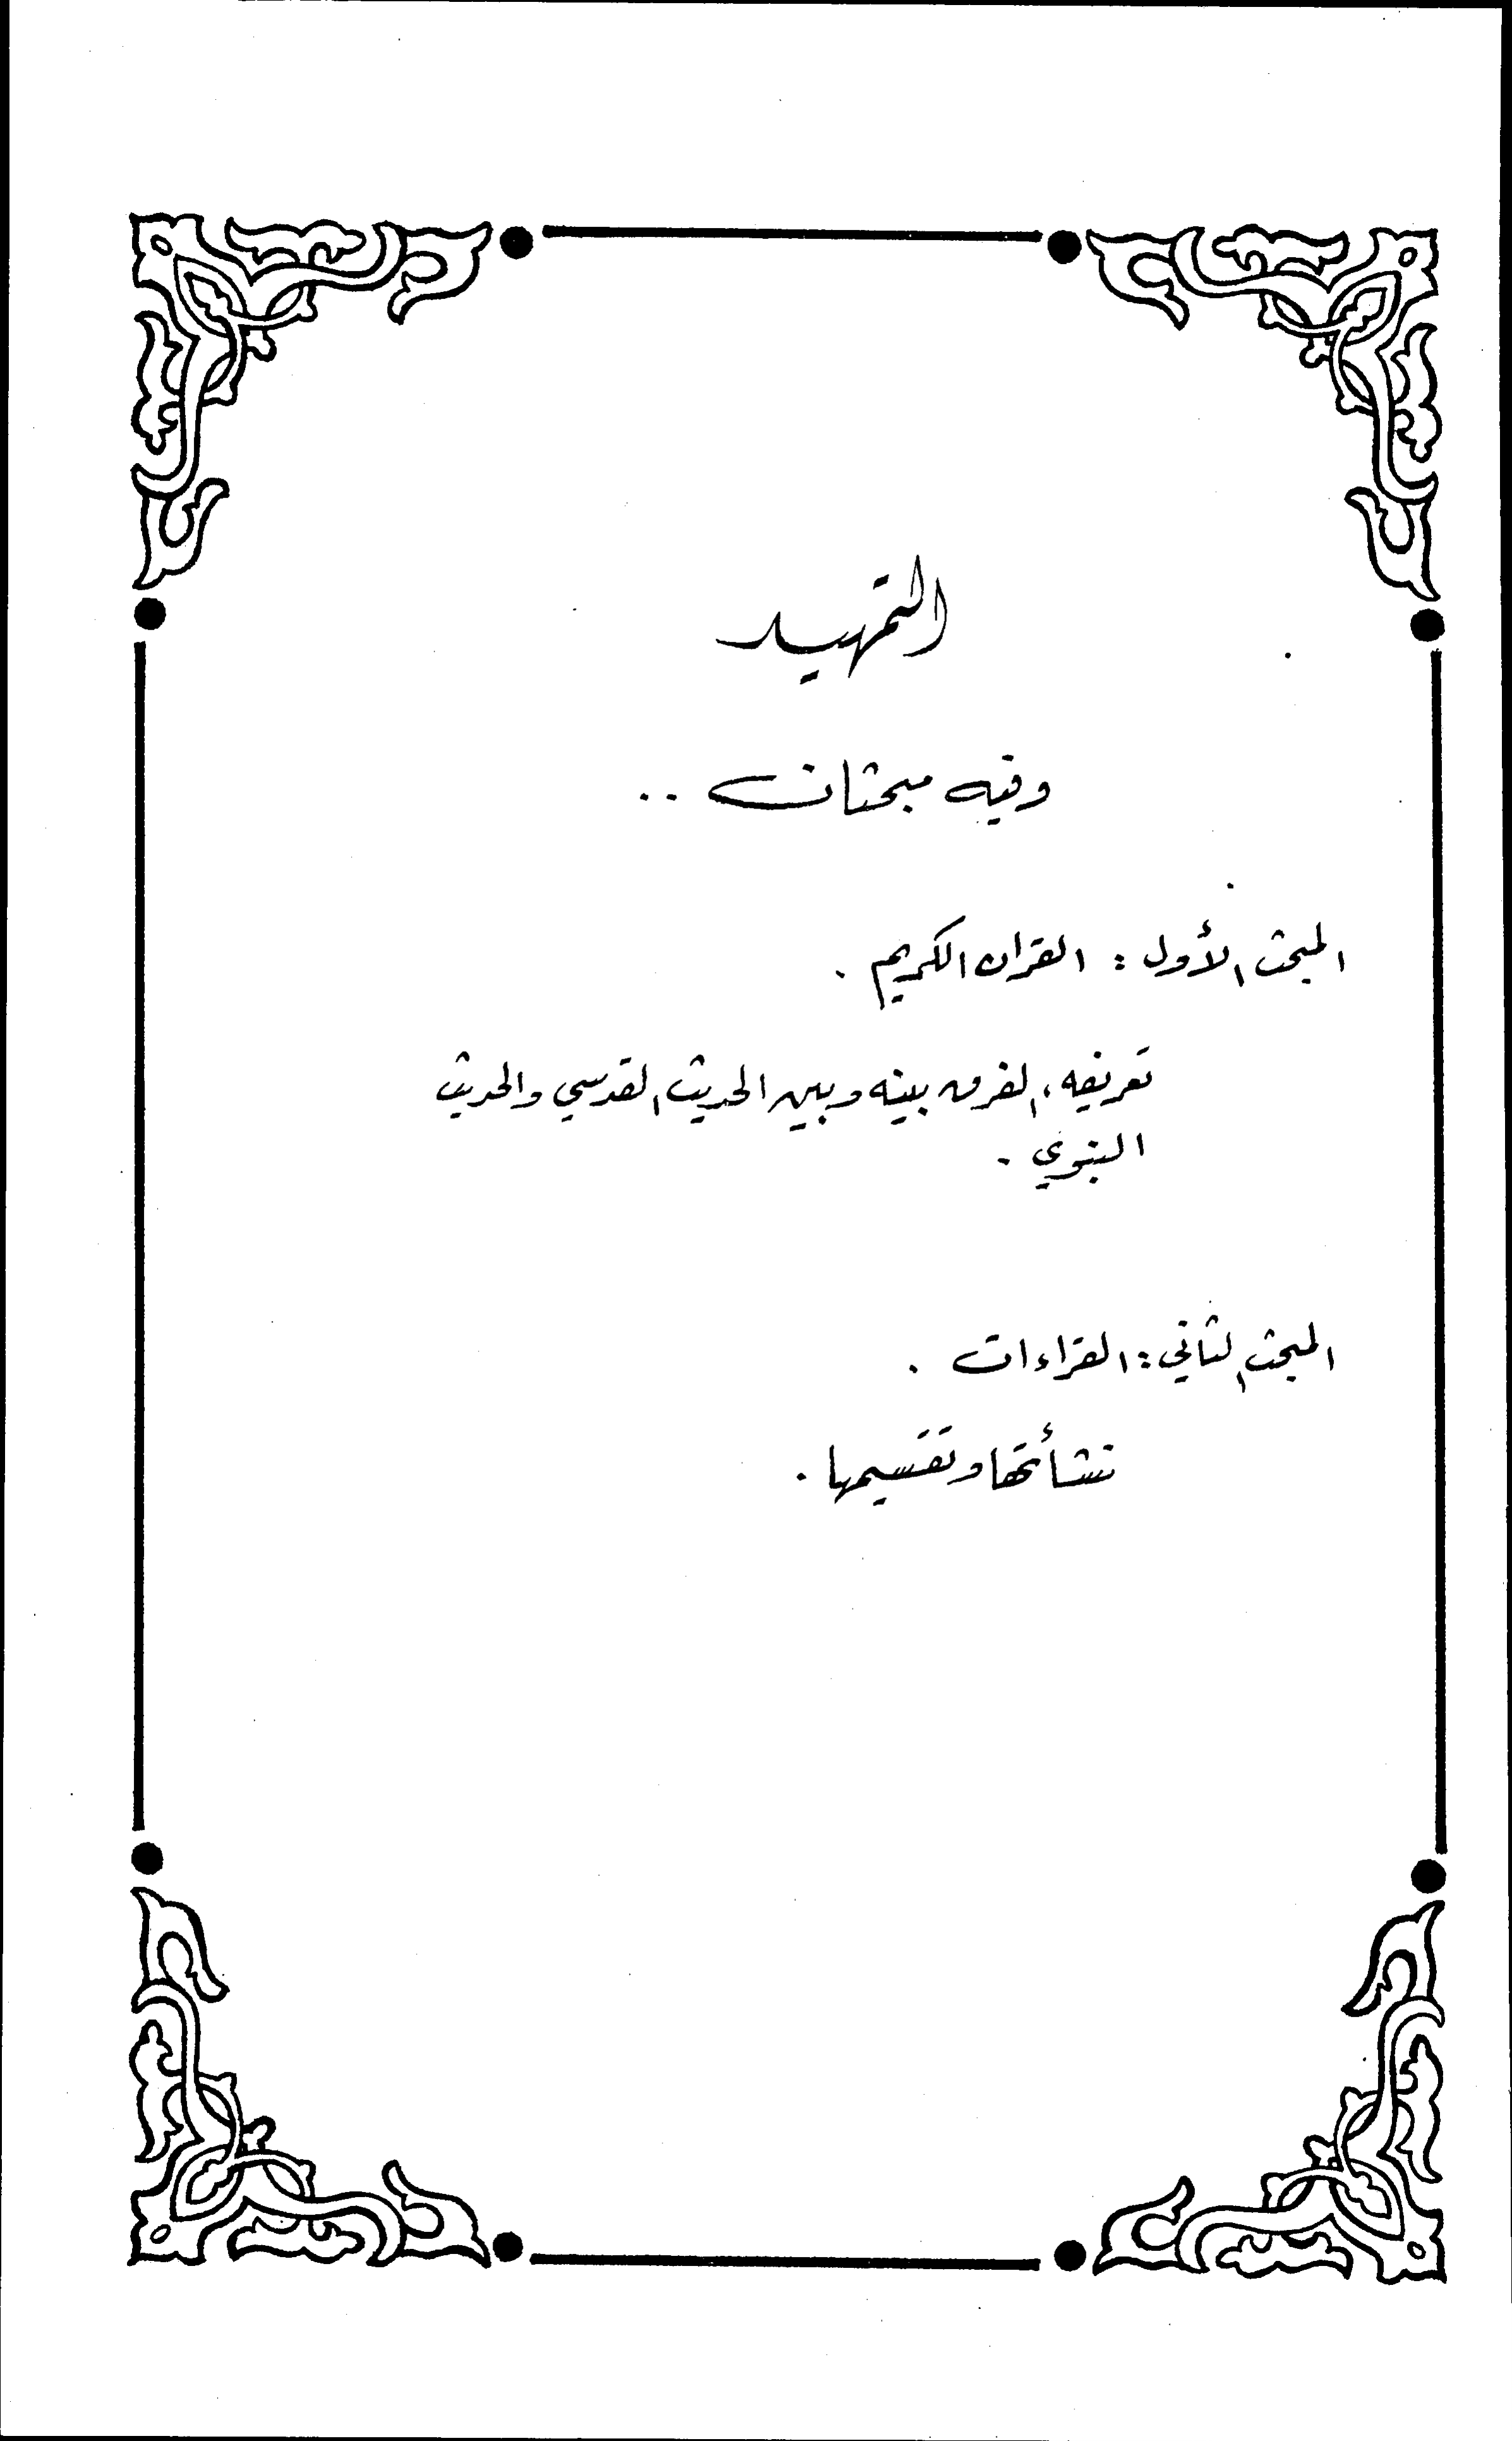 التمهيد
وفيه مبحثان ..
المبحث الأول : القران الكريم .
تعريفه ، الفرق بينه وبين الحديث القدسي والحديث
النبوي .
المبحث الثاني : القراءات .
نشأتها وتقسيمها .